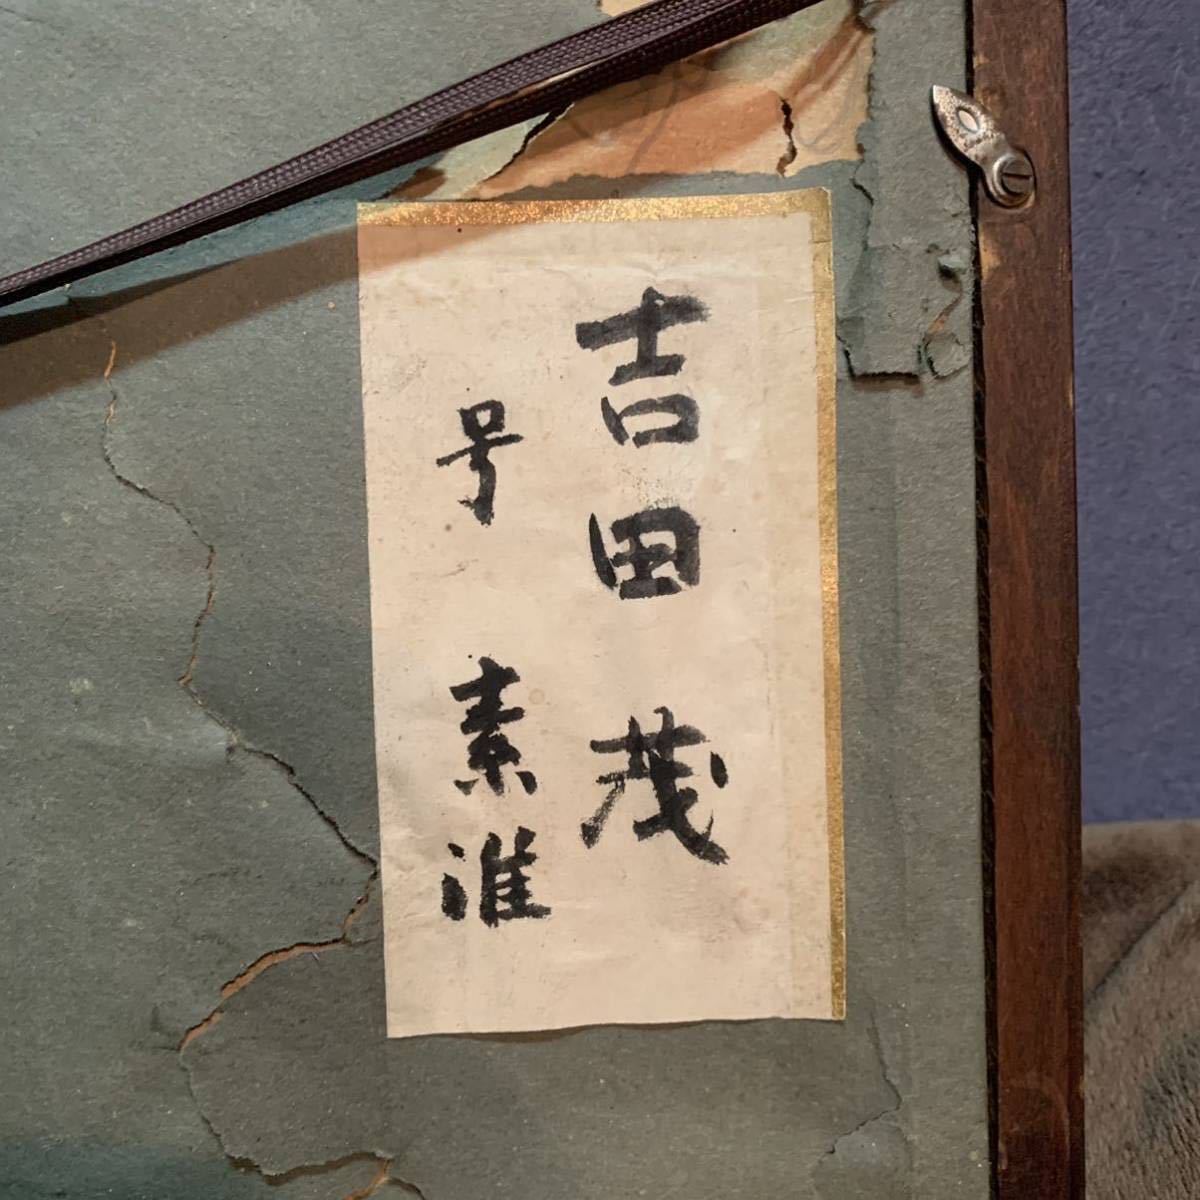 吉田茂
号 素淮